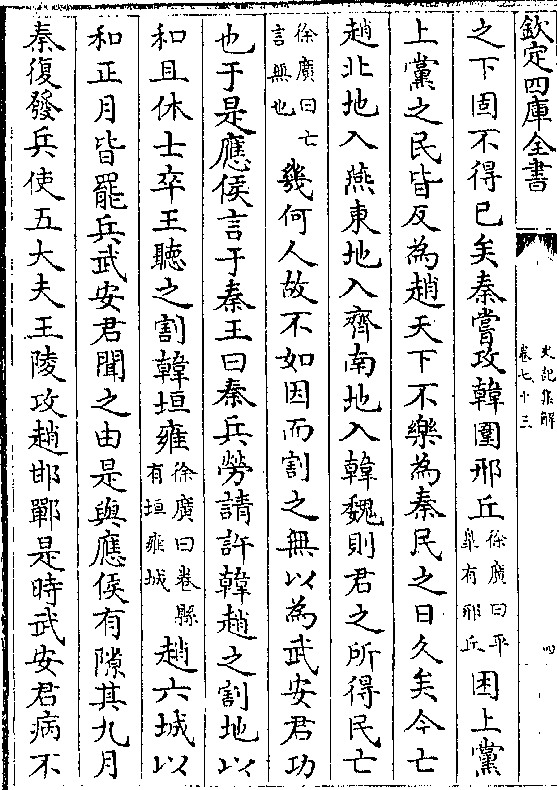 欽定四庫全書
史記集解
卷七十三
四
之下固不得已矣秦嘗攻韓圍邢丘徐廣曰平
臯有邢丘困上黨
上黨之民皆反為趙天下不樂為秦民之日久矣今亡
趙北地入燕東地入齊南地入韓魏則君之所得民亡
徐廣曰亡
言無也幾何人故不如因而割之無以為武安君功
也于是應侯言于秦王曰秦兵勞請許韓趙之割地以
和且休士卒王聽之割韓垣雍徐廣曰卷縣
有垣雍城趙六城以
和正月皆罷兵武安君聞之由是與應侯有隙其九月
秦復發兵使五大夫王陵攻趙邯鄲是時武安君病不